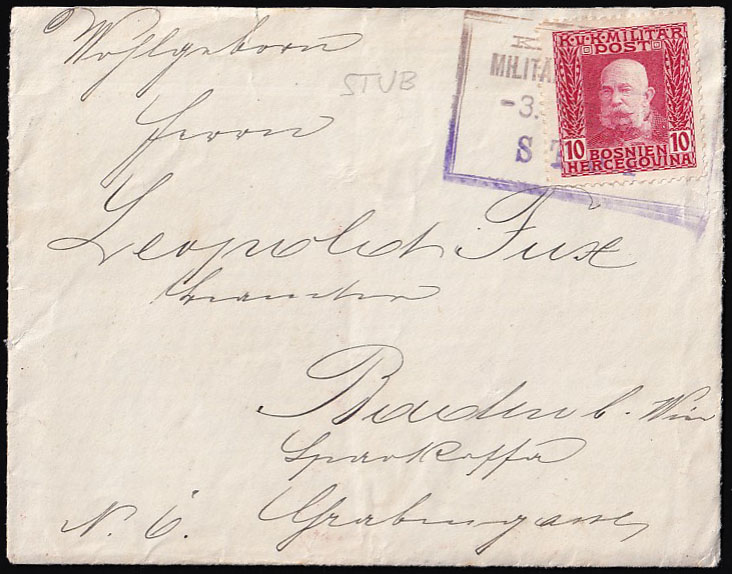 Wohlgeborn
Herrn
Leopold Fux
Beamter
Baden b. Wien
Sparkassa
N. Ö. Grabengasse
STUB
K.
MILITÄ
-3.
S T
K.u.K. MILITÄR
POST
10 BOSNIEN 10
HERCEGOVINA